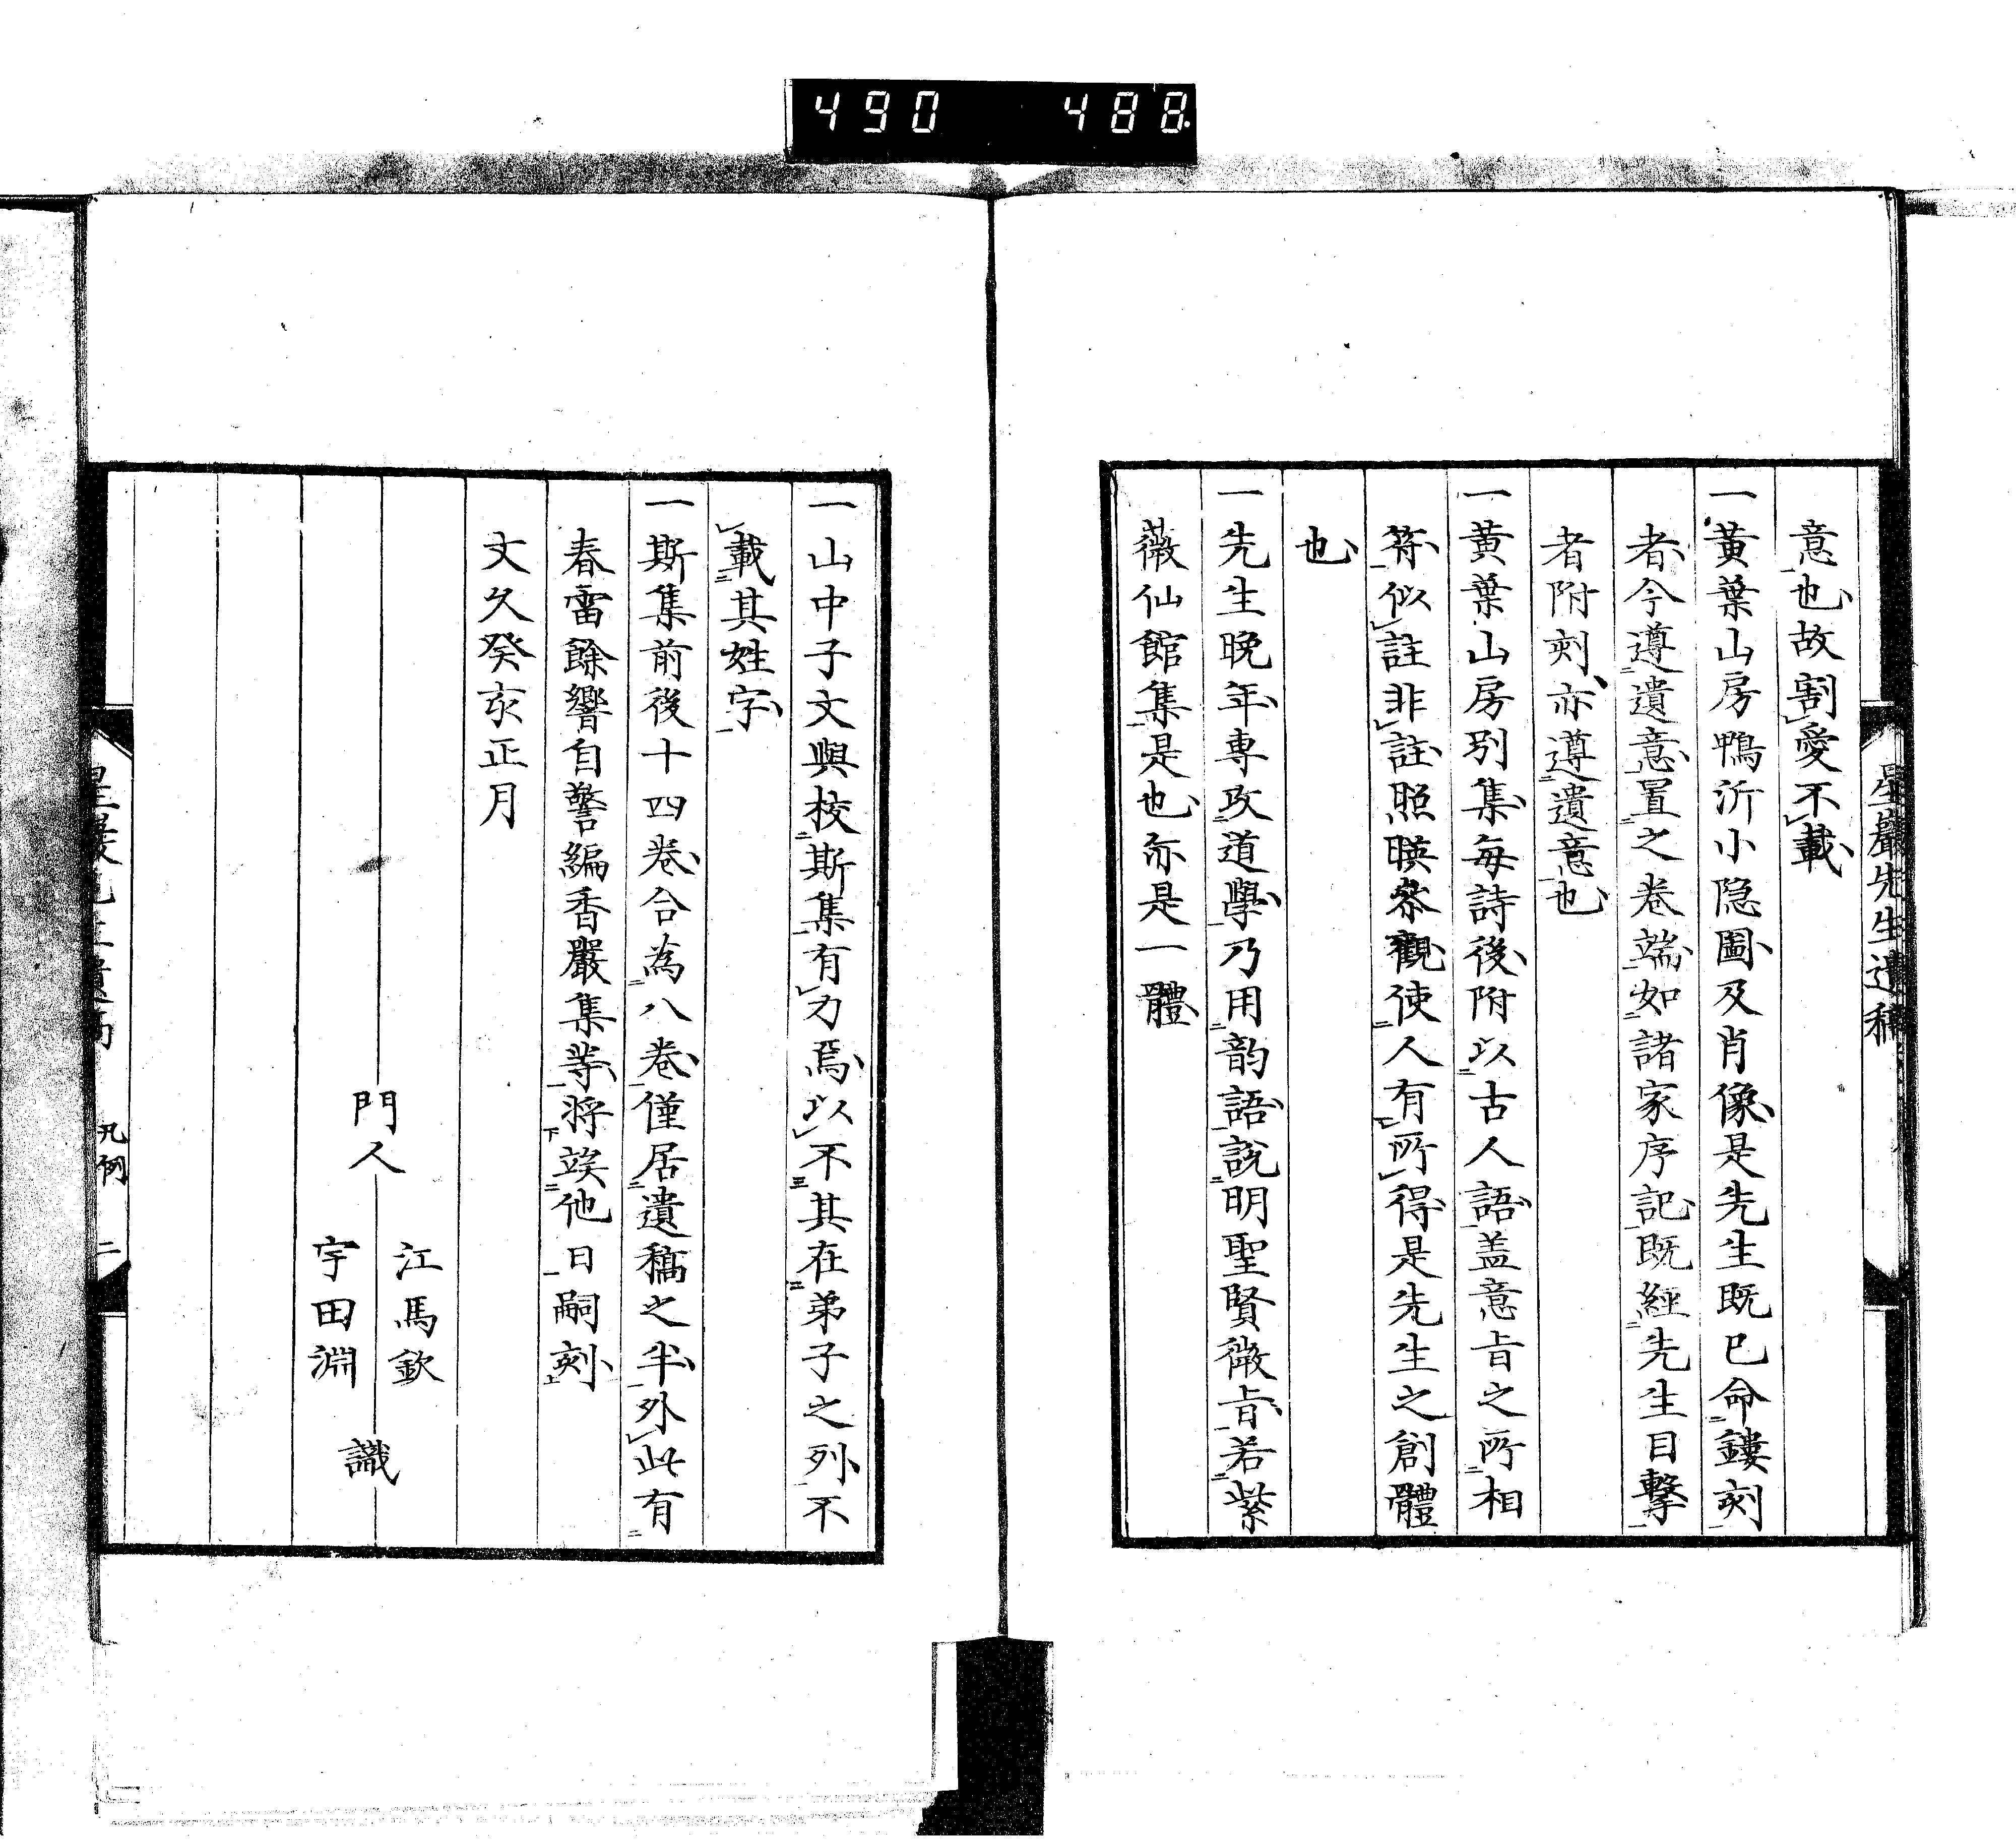 490 488
星巖先生遺稿
意也故割愛不載
一黃葉山房鴨沂小隐圖及肖像是先生既已命鏤刻
者今遵遺意置之卷端如諸家序記既經先生目擊
者附刻亦遵遺意也
一黃葉山房別集每詩後附以古人語盖意旨之所相
符似註非註照暎叅觀使人有所得是先生之創體
也
一先生晚年専攻道學乃用韵語說明聖賢微旨若紫
薇仙館集是也亦是一體
一山中子文與校斯集有力焉以不其在弟子之列不
載其姓字
一斯集前後十四卷合為八卷僅居遺稿之半外此有
春雷餘響自警編香嚴集等將竢他日嗣刻
文久癸亥正月
門人
江馬欽
宇田淵
識
星巖先生遺稿 凡例 二